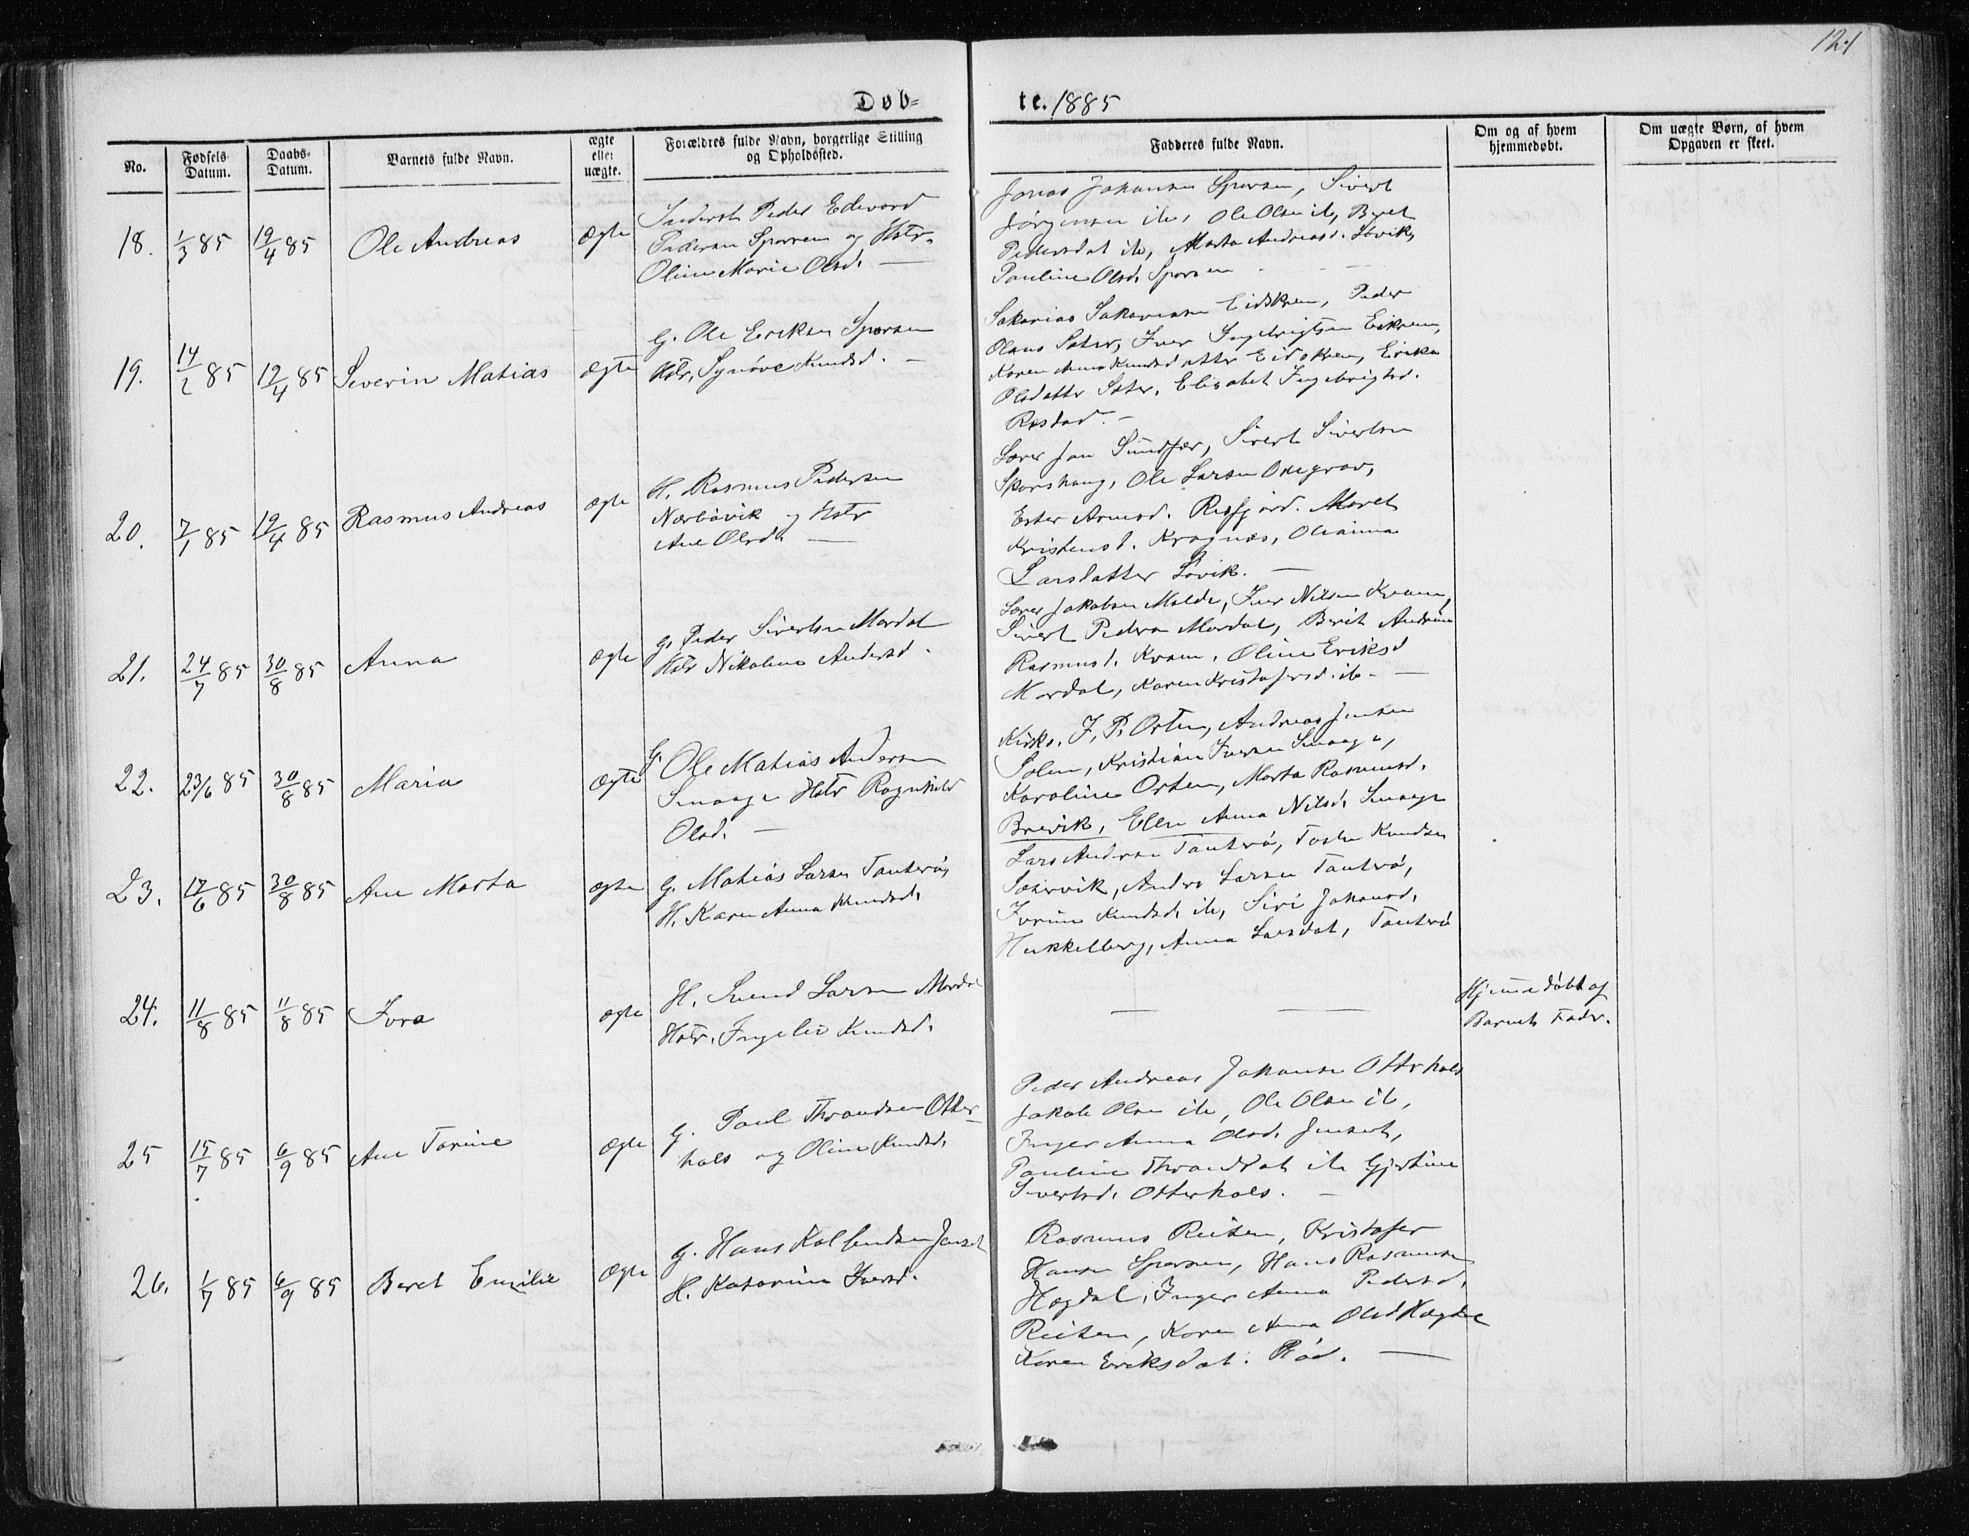 121
Døb=
te. 1885
No.
Fødsels Datum.
Daabs- Datum.
Barnets fulde Navn.
ægte eller uægte.
Forældres fulde Navn, borgerlige Stilling og Opholdssted.
Fadderes fulde Navn.
Om og af hvem hjemmedøbt.
Om uægte Børn, af hvem Opgaven er skeet.
18. 1/3 85 19/4 85 Ole Andreas ægte
Peder Edvard
Pedersen Sporsem og Hstr.
Oline Marie Olsd. —
Jonas Johansen Sporsem, Sivert
Jørgensen ib, Ole Olsen ib, Beret
Pedersdat ib, Marta Andreasd. Løvik,
Pauline Olsd. Sporsem
19. 14/2 85 19/4 85 Severin Matias ægte
G. Ole Eriksen Sporsem
Hstr. Synøve Knudsd. —
Sakarias Sakariasen Eidskrem, Peder
Olaus Sæter, Iver Ingebrigtsen Eikrem,
Karen Anna Knudsdatter Eidskrem, Erika
Olsdatter Sæter, Elisabet Ingebrigtsd.
Røstad. —
20. 7/1 85 19/4 85 Rasmus Andreas ægte
H. Rasmus Pedersen
Nærbøvik og Hstr
Ane Olsd. —
Lærer Jon Sundfær, Sivert Sivertsen
Sporshaug, Ole Larsen Oxegrav,
Ester Arnesd. Risfjord. Maret
Kristensd. Kragnæs, Olianna
Larsdatter Løvik. —
21. 24/7 85 30/8 85 Anna ægte
G. Peder Sivertsen Mordal
Hstr Nikoline Andersd.
Lærer Jakobsen Molde, Iver Nilsen Kvam,
Sivert Pedersen Mordal, Berit Andrine
Rasmusd. Kvam, Oline Eriksd
Mordal, Karen Kristofersd. ib. —
22. 23/6 85 30/8 85 Maria ægte
G. Ole Matias Andersen
Smaage Hstr Ragnhild
Olsd. —
Kirks. J. P. Orten, Andreas Jensen
Solem, Kristian Iversen Smaage,
Karoline Orten, Marta Rasmusd.
Brevik, Ellen Anna Nilsd. Smaage
23. 17/6 85 30/8 85 Ane Marta ægte
G. Matias Larsen Tauterø,
H. Karen Anna Knudsd.
Lars Andersen Tauterø, Tosten Knudsen
Sætervik, Anders Larsen Tauterø,
Ivrine Knudsd. ib, Siri Johansd.
Hukkelberg, Anna Larsdat, Tauterø
24. 11/8 85 11/8 85 Ivra ægte
H. Svend Larsen Mordal
Hstr. Ingeleiv Knudsd.
— —
Hjemmedøbt af
Barnets Fader.
25 15/7 85 6/9 85 Ane Tarine ægte
G. Paul Thrandsen Otter-
hals og Oline Knudsd.
Peder Andreas Johansen Otterhals
Jakob Olsen ib, Ole Olsen ib,
Inger Anna Olsd. Jenset,
Pauline Thrandsdat ib Gjertine
Sivertsd. Otterhals. —
26. 1/7 85 6/9 85 Beret Emilie ægte
G. Hans Kolbendsen Jenset
H. Katarina Iversd.
Rasmus Reiten, Kristofer
Hansen Sporsem, Hans Rasmussen
Høgdal, Inger Anna Pedersd.
Reiten, Karen Anna Olsd Høgdal
Karen Eriksdat. Rød. —